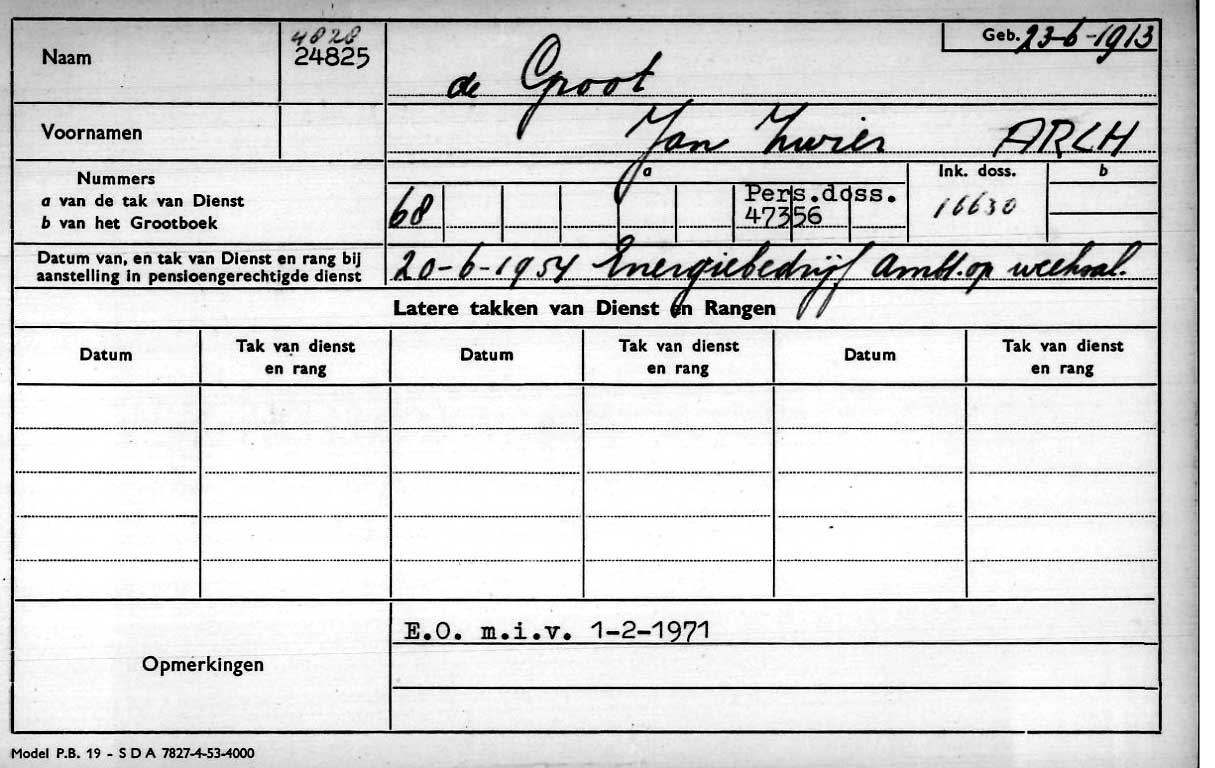 4828
Naam 24825 de Groot Geb. 23-6-1913
Voornamen Jan Zwier ARCH
Nummers
a van de tak van Dienst
b van het Grootboek
a Ink. doss. b
68 Pers.doss. 16630
47356
Datum van, en tak van Dienst en rang bij
aanstelling in pensioengerechtigde dienst
20-6-1954 Energiebedrijf Ambt. op weeksal.
Latere takken van Dienst en Rangen
Datum Tak van dienst en rang Datum Tak van dienst en rang Datum Tak van dienst en rang
Opmerkingen
E.O. m.i.v. 1-2-1971
Model P.B. 19 - S D A 7827-4-53-4000